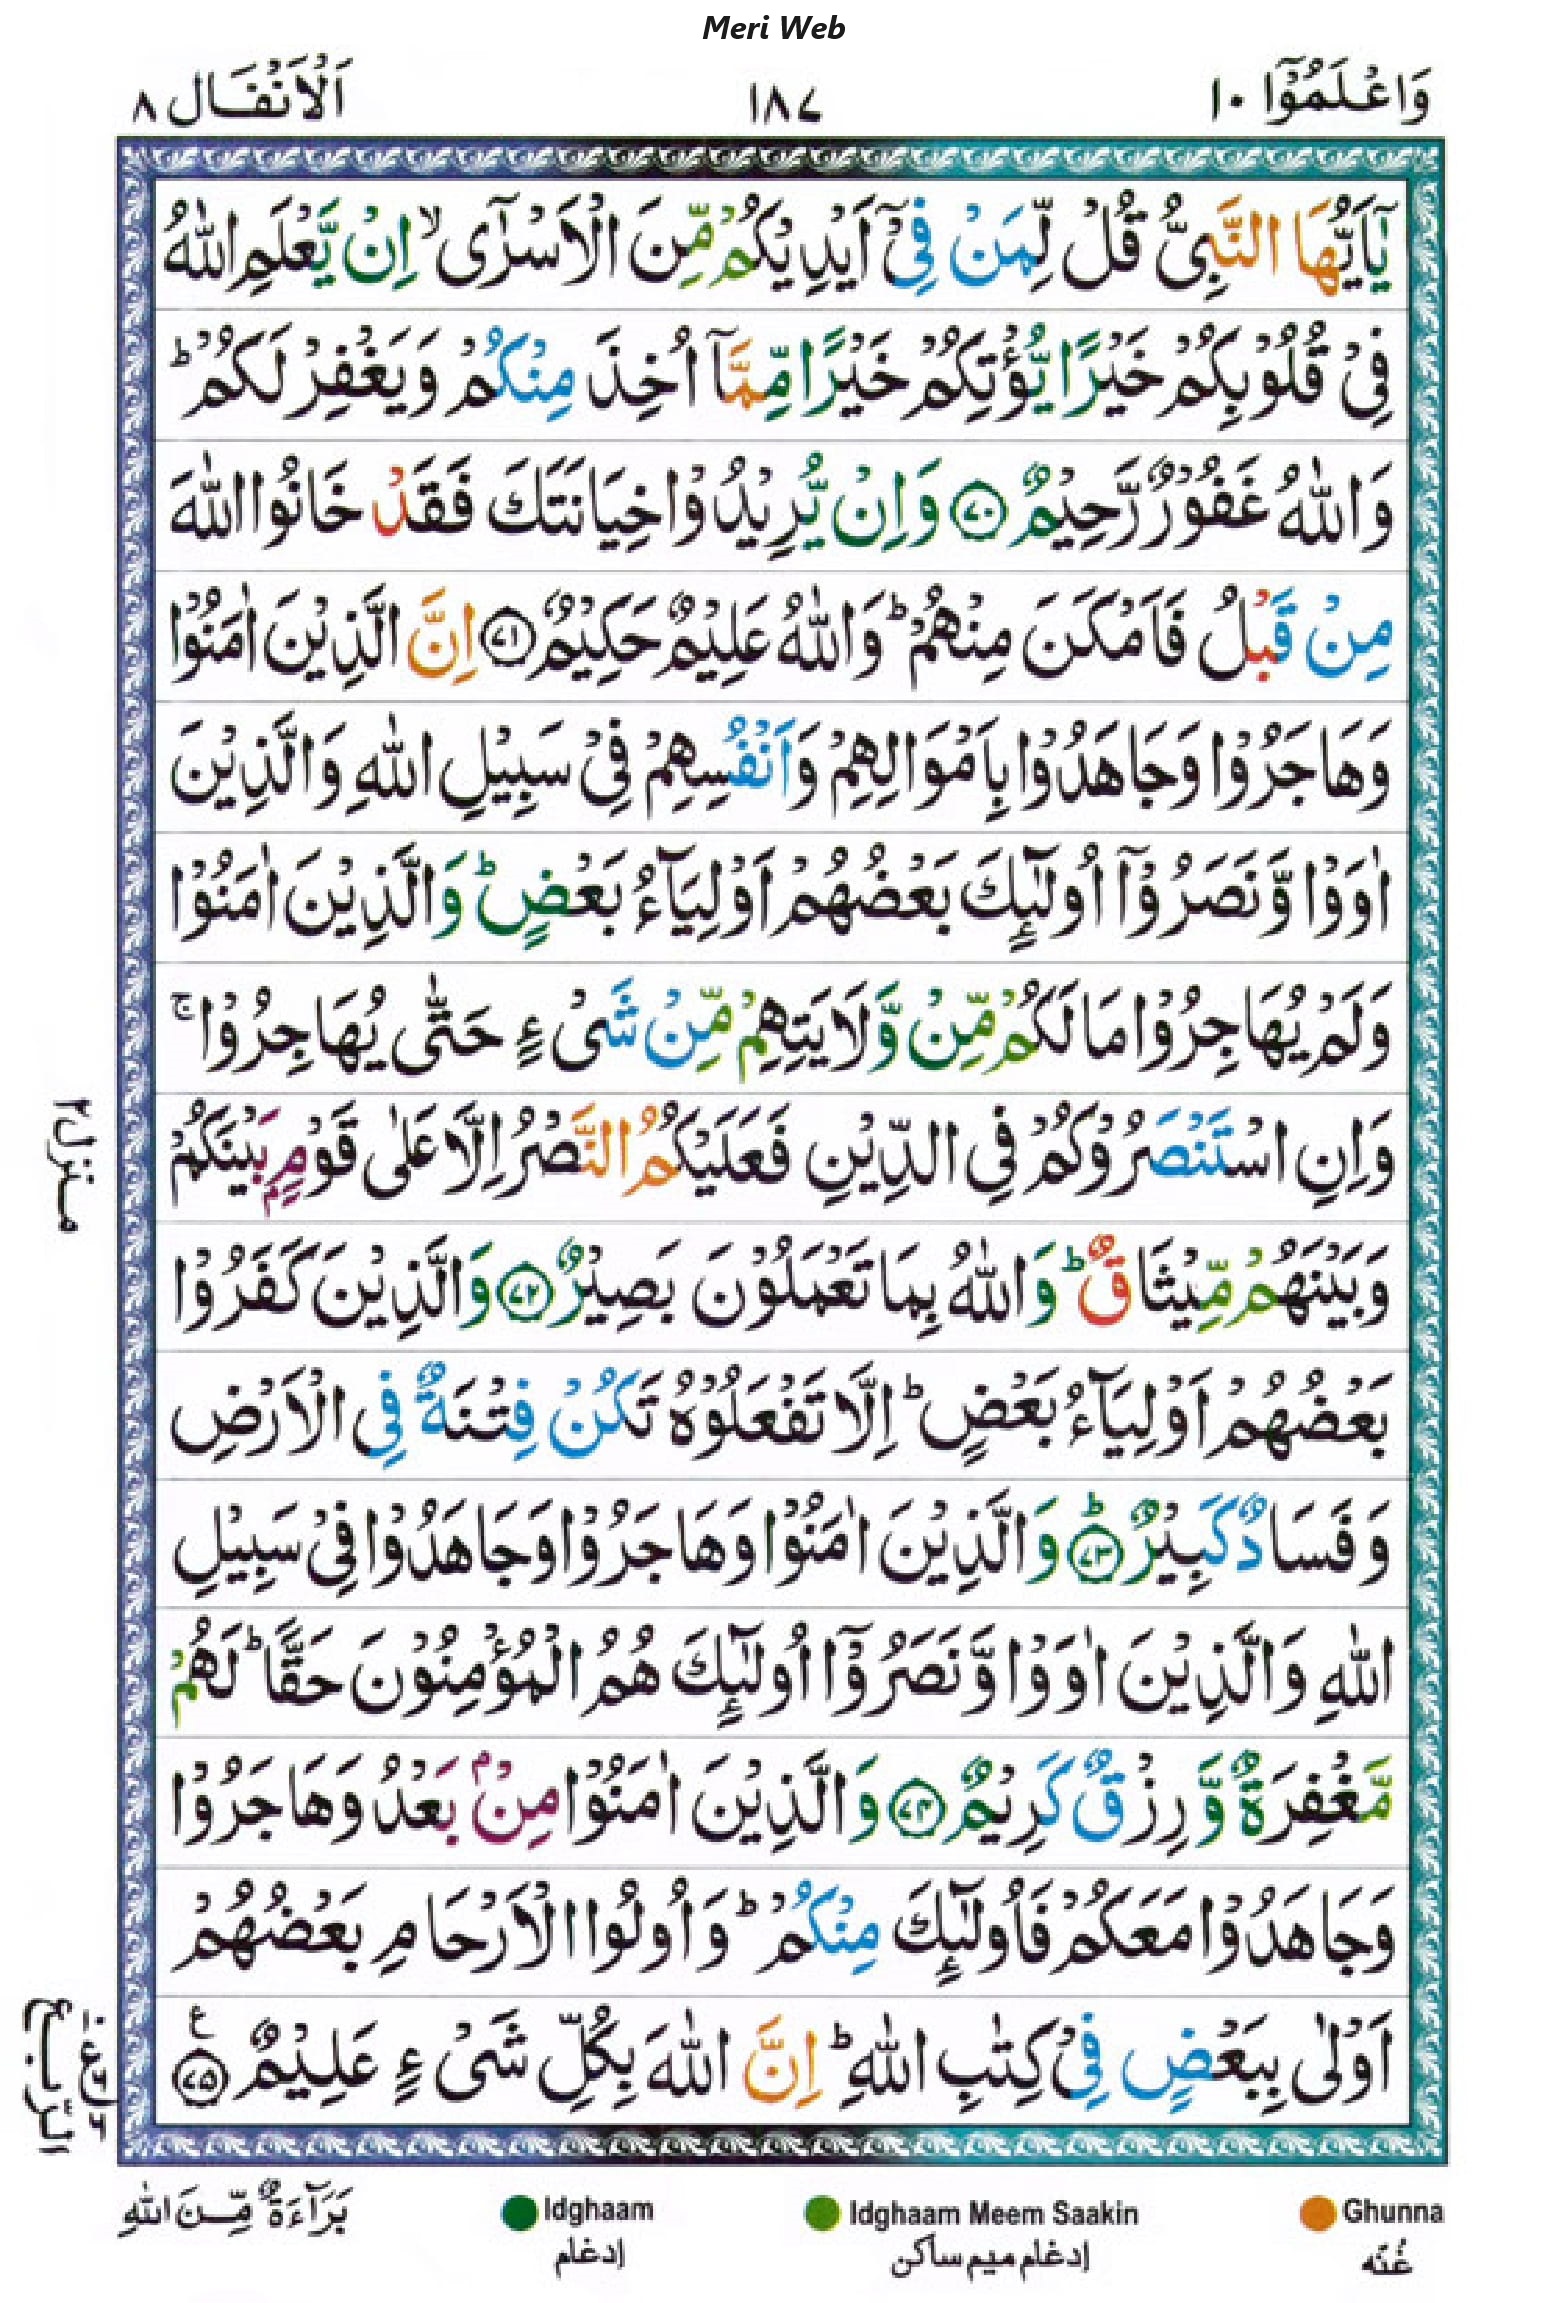 Meri Web
وَاعْلَمُوْٓا ١٠
١٨٧
اَلْاَنْفَال ٨
يٰٓاَيُّهَا النَّبِىُّ قُلْ لِّمَنْ فِىْٓ اَيْدِيْكُمْ مِّنَ الْاَسْرٰٓى ۙ اِنْ يَّعْلَمِ اللّٰهُ
فِىْ قُلُوْبِكُمْ خَيْرًا يُّؤْتِكُمْ خَيْرًا مِّمَّآ اُخِذَ مِنْكُمْ وَيَغْفِرْ لَكُمْ ؕ
وَاللّٰهُ غَفُوْرٌ رَّحِيْمٌ ۝٧٠ وَاِنْ يُّرِيْدُوْا خِيَانَتَكَ فَقَدْ خَانُوا اللّٰهَ
مِنْ قَبْلُ فَاَمْكَنَ مِنْهُمْ ؕ وَاللّٰهُ عَلِيْمٌ حَكِيْمٌ ۝٧١ اِنَّ الَّذِيْنَ اٰمَنُوْا
وَهَاجَرُوْا وَجَاهَدُوْا بِاَمْوَالِهِمْ وَاَنْفُسِهِمْ فِىْ سَبِيْلِ اللّٰهِ وَالَّذِيْنَ
اٰوَوْا وَّنَصَرُوْٓا اُولٰٓئِكَ بَعْضُهُمْ اَوْلِيَآءُ بَعْضٍ ؕ وَالَّذِيْنَ اٰمَنُوْا
وَلَمْ يُهَاجِرُوْا مَا لَكُمْ مِّنْ وَّلَايَتِهِمْ مِّنْ شَىْءٍ حَتّٰى يُهَاجِرُوْا ۚ
وَاِنِ اسْتَنْصَرُوْكُمْ فِى الدِّيْنِ فَعَلَيْكُمُ النَّصْرُ اِلَّا عَلٰى قَوْمٍۭ بَيْنَكُمْ
وَبَيْنَهُمْ مِّيْثَاقٌ ؕ وَاللّٰهُ بِمَا تَعْمَلُوْنَ بَصِيْرٌ ۝٧٢ وَالَّذِيْنَ كَفَرُوْا
بَعْضُهُمْ اَوْلِيَآءُ بَعْضٍ ؕ اِلَّا تَفْعَلُوْهُ تَكُنْ فِتْنَةٌ فِى الْاَرْضِ
وَفَسَادٌ كَبِيْرٌ ۝٧٣ؕ وَالَّذِيْنَ اٰمَنُوْا وَهَاجَرُوْا وَجَاهَدُوْا فِىْ سَبِيْلِ
اللّٰهِ وَالَّذِيْنَ اٰوَوْا وَّنَصَرُوْٓا اُولٰٓئِكَ هُمُ الْمُؤْمِنُوْنَ حَقًّا ؕ لَهُمْ
مَّغْفِرَةٌ وَّرِزْقٌ كَرِيْمٌ ۝٧٤ وَالَّذِيْنَ اٰمَنُوْا مِنْۢ بَعْدُ وَهَاجَرُوْا
وَجَاهَدُوْا مَعَكُمْ فَاُولٰٓئِكَ مِنْكُمْ ؕ وَاُولُوا الْاَرْحَامِ بَعْضُهُمْ
اَوْلٰى بِبَعْضٍ فِىْ كِتٰبِ اللّٰهِ ؕ اِنَّ اللّٰهَ بِكُلِّ شَىْءٍ عَلِيْمٌ ۝٧٥ ع
منزل٢
الربع
Ghunna
غُنّه
Idghaam Meem Saakin
إدغام ميم ساكن
Idghaam
إدغام
بَرَآءَةٌ مِّنَ اللّٰهِ